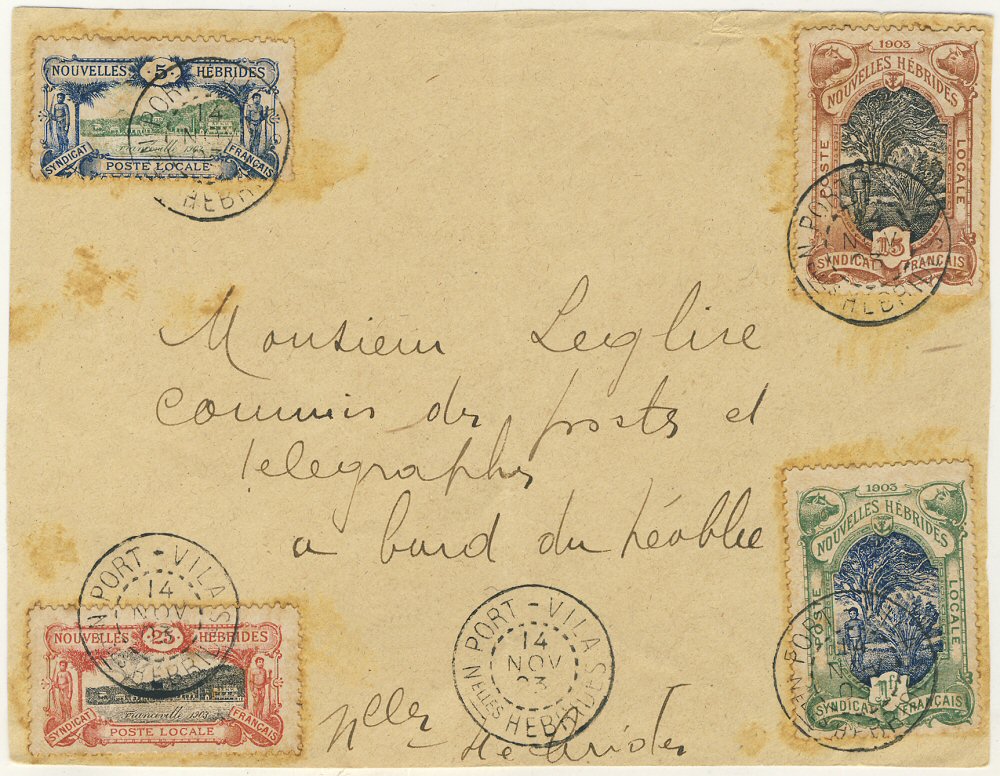 NOUVELLES 5 HÉBRIDES
Franceville 1903
SYNDICAT FRANÇAIS
POSTE LOCALE
PORT
14
HEBR
1903
NOUVELLES HÉBRIDES
POSTE LOCALE
15
SYNDICAT FRANÇAIS
N PORT
14
HEBR
Monsieur Leglise
commis des postes et
Telegraphes
a bord du
PORT-VILA
14
NOV
03
NELLES HEBR
NOUVELLES 25 HÉBRIDES
Franceville 1903
SYNDICAT FRANÇAIS
POSTE LOCALE
PORT-VILA
14
NOV
03
NELLES HEBRIDES
Nlles Hebrides
1903
NOUVELLES HÉBRIDES
POSTE LOCALE
1fr
SYNDICAT FRANÇAIS
PORT
14